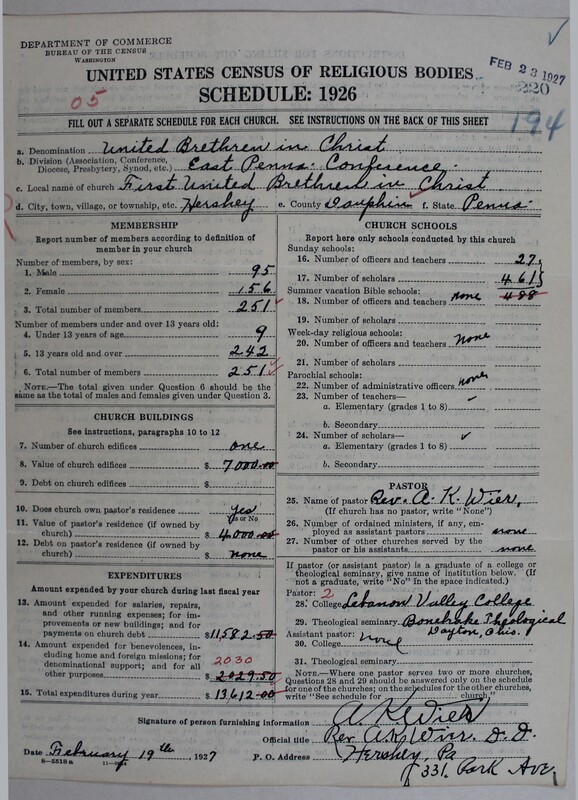 DEPARTMENT OF COMMERCE
BUREAU OF THE CENSUS
WASHINGTON
FEB 23 1927
220
UNITED STATES CENSUS OF RELIGIOUS BODIES
SCHEDULE: 1926
05
194
FILL OUT A SEPARATE SCHEDULE FOR EACH CHURCH. SEE INSTRUCTIONS ON THE BACK OF THIS SHEET
a. Denomination United Brethren in Christ
b. Division (Association, Conference, Diocese, Presbytery, Synod, etc.) East Penna. Conference
c. Local name of church First United Brethren in Christ
d. City, town, village, or township, etc. Hershey e. County Dauphin f. State Penna
MEMBERSHIP
Report number of members according to definition of
member in your church
Number of members, by sex:
1. Male 95
2. Female 156
3. Total number of members 251
Number of members under and over 13 years old:
4. Under 13 years of age 9
5. 13 years old and over 242
6. Total number of members 251
NOTE.—The total given under Question 6 should be the
same as the total of males and females given under Question 3.
CHURCH BUILDINGS
See instructions, paragraphs 10 to 12
7. Number of church edifices one
8. Value of church edifices $ 7000.00
9. Debt on church edifices $
10. Does church own pastor's residence? yes
Yes or No
11. Value of pastor's residence (if owned by
church) $ 4000.00
12. Debt on pastor's residence (if owned by
church) $ none
EXPENDITURES
Amount expended by your church during last fiscal year
13. Amount expended for salaries, repairs,
and other running expenses; for im-
provements or new buildings; and for
payments on church debt $11,582.50
14. Amount expended for benevolences,
including home and foreign missions; for
denominational support; and for all
other purposes $ 2029.50
2030
15. Total expenditures during year $ 13,612.00
CHURCH SCHOOLS
Report here only schools conducted by this church
Sunday schools:
16. Number of officers and teachers 27
17. Number of scholars 461
488
Summer vacation Bible schools:
18. Number of officers and teachers none
19. Number of scholars
Week-day religious schools:
20. Number of officers and teachers none
21. Number of scholars
Parochial schools:
22. Number of administrative officers none
23. Number of teachers—
a. Elementary (grades 1 to 8)
b. Secondary
24. Number of scholars—
a. Elementary (grades 1 to 8)
b. Secondary
PASTOR
25. Name of pastor Rev. A. K. Wier,
(If church has no pastor, write "None")
26. Number of ordained ministers, if any, em-
ployed as assistant pastors none
27. Number of other churches served by the
pastor or his assistants none
If pastor (or assistant pastor) is a graduate of a college or
theological seminary, give name of institution below. (If
not a graduate, write "No" in the space indicated.)
Pastor: 2
28. College Lebanon Valley College
29. Theological seminary Bonebrake Theological
Dayton, Ohio.
Assistant pastor:
30. College none
31. Theological seminary
NOTE.—Where one pastor serves two or more churches,
Questions 28 and 29 should be answered only on the schedule
for one of the churches; on the schedules for the other churches,
write "See schedule for church."
Signature of person furnishing information A. K. Wier
Official title Rev. A. K. Wier. D. D.
Date February 19th, 1927 P. O. Address Hershey, Pa
331 Park Ave.